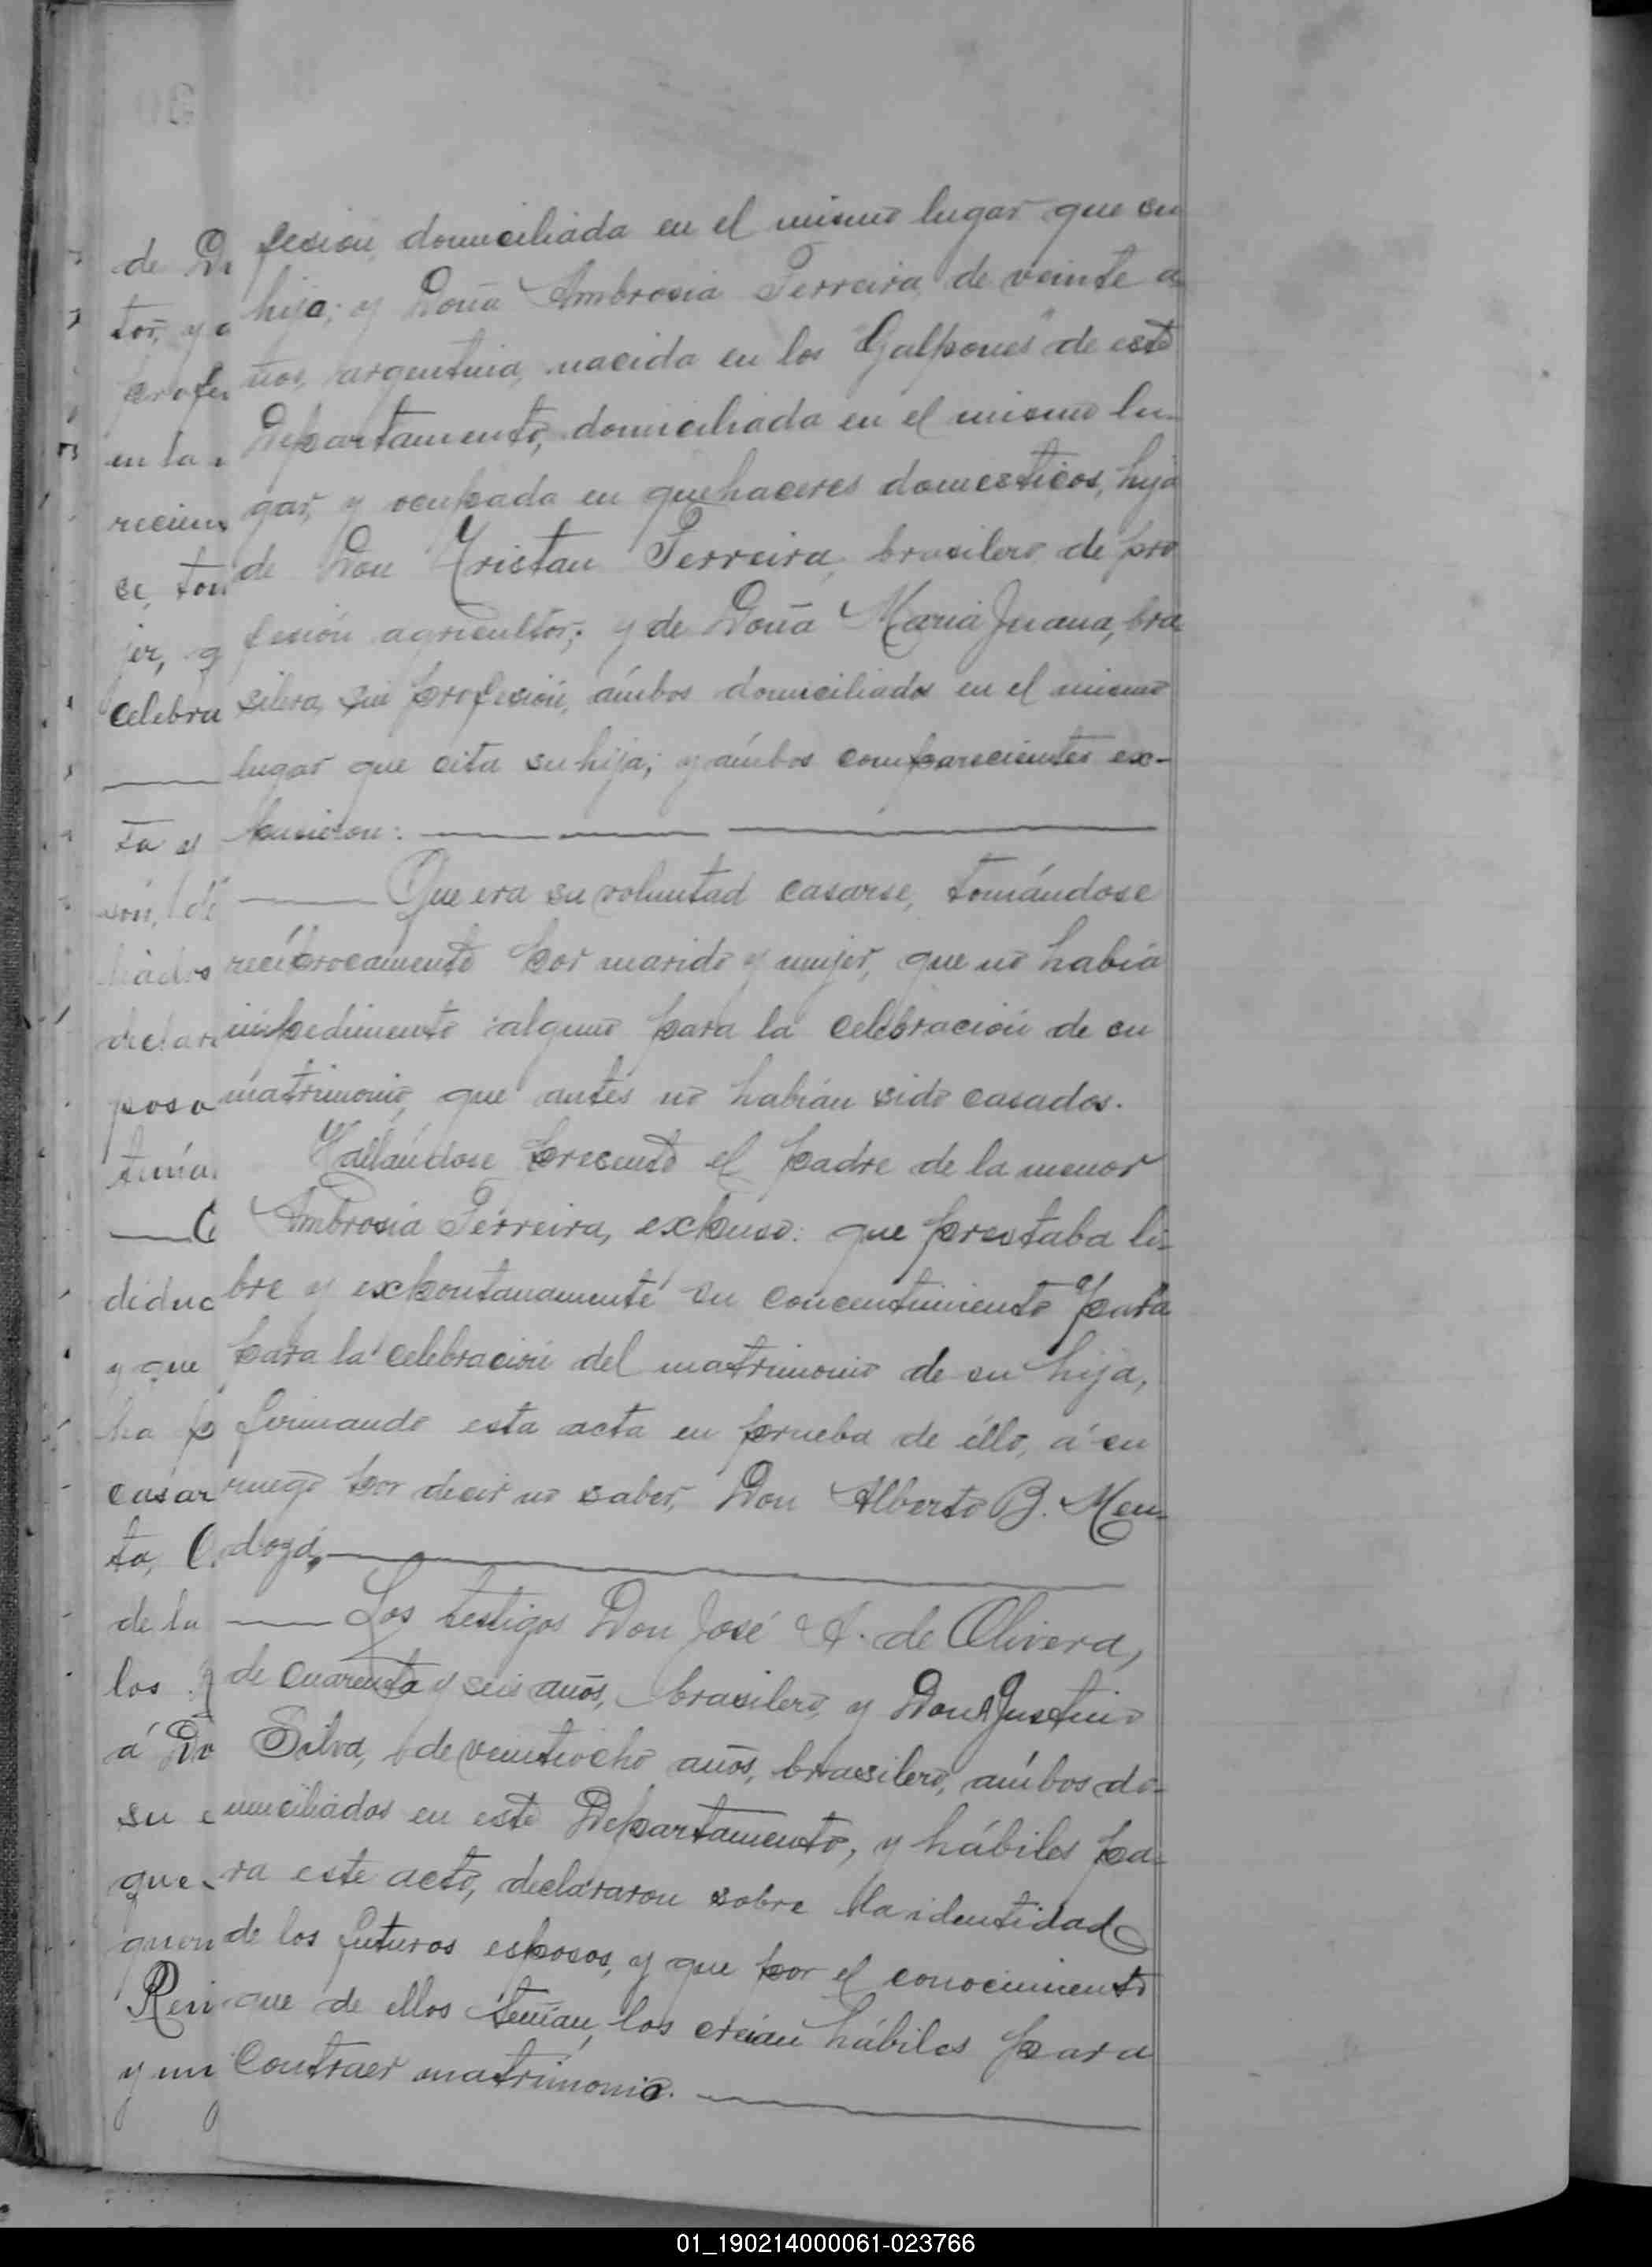 fesión, domiciliada en el mismo lugar que su
hija; y Doña Ambrosia Ferreira, de veinte a-
ños, argentina, nacida en los "Galpones" de este
Departamento, domiciliada en el mismo lu-
gar, y ocupada en quehaceres domesticos, hija
de Don Tristan Ferreira, brasilero de pro
fesión agricultor; y de Doña Maria Juana, bra-
silera, sin profesión, ámbos domiciliados en el mismo
lugar que cita su hija; y ámbos comparecientes ex-
pusieron:
Que era su voluntad casarse, tomándose
recíprocamente por marido y mujer, que no habia
impedimento alguno para la celebración de su
matrimonio, que antes no habían sido casados.
Hallándose presente el padre de la menor
Ambrosia Ferreira, expuso: que prestaba li-
bre y expontanamente su concentimiento para
para la celebración del matrimonio de su hija,
firmando esta acta en prueba de éllo, á su
ruego por decir no saber, Don Alberto B. Men-
doza,
Los testigos Don José A. de Olivera,
de cuarenta y seis años, brasilero, y Don Justino
Silva, de veintiocho años, brasilero, ámbos do-
miciliados en este Departamento, y hábiles pa-
ra este acto, declararon sobre la identidad
de los futuros esposos, y que por el conocimiento
que de ellos tenían, los creían hábiles para
contraer matrimonio.
de D
tor, y a
profes
en la
recien
se, tom
jer, q
celebra
ta y
són, de
liados
declara
poso
tenía
C
deduc
y que
ha p
casar
ta, C
de la
los
á Do
su c
que
quen
Ren
y un
01_190214000061-023766